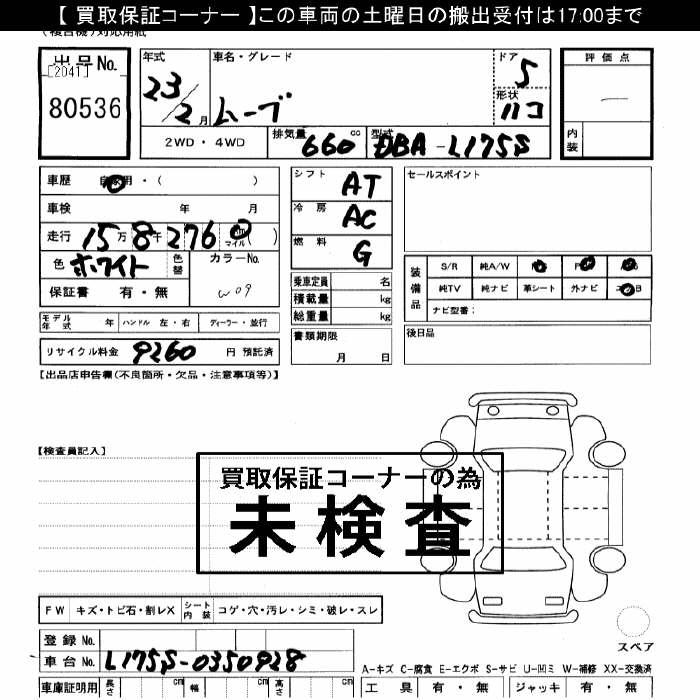 【 買取保証コーナー 】この車両の土曜日の搬出受付は17:00まで
出品No.
[2041]
80536
年式
23/2月
車名・グレード
ムーブ
ドア
5
形状
ハコ
評価点
内装
2WD・4WD
排気量 660 cc
型式 DBA-L175S
車歴 自家用・( )
車検 年 月
走行 15万8千276 km マイル ( )
色 ホワイト
色替
カラーNo.
W09
保証書 有・無
シフト AT
冷房 AC
燃料 G
乗車定員 名
積載量 kg
総重量 kg
書類期限
月 日
セールスポイント
装備品
S/R 純A/W
純TV 純ナビ 革シート 外ナビ
ナビ型番:
後日品
モデル年式 年 ハンドル 左・右 ディーラー・並行
リサイクル料金 9260 円 預託済
【出品店申告欄(不良箇所・欠品・注意事項等)】
【検査員記入】
買取保証コーナーの為
未検査
FW キズ・トビ石・割レX シート内装 コゲ・穴・汚レ・シミ・破レ・スレ
登録No.
車台No. L175S-0350928
スペア
A-キズ C-腐食 E-エクボ S-サビ U-凹ミ W-補修 XX-交換済
車庫証明用 長さ cm 幅 cm 高さ cm
工具 有・無 ジャッキ 有・無